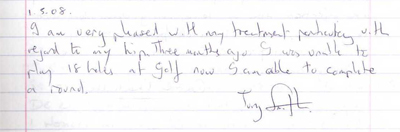 1.5.08.
I am very pleased with my treatment particulary with
regard to my hip. Three months ago I was unable to
play 18 holes at Golf now I am able to complete
a round.
Tony